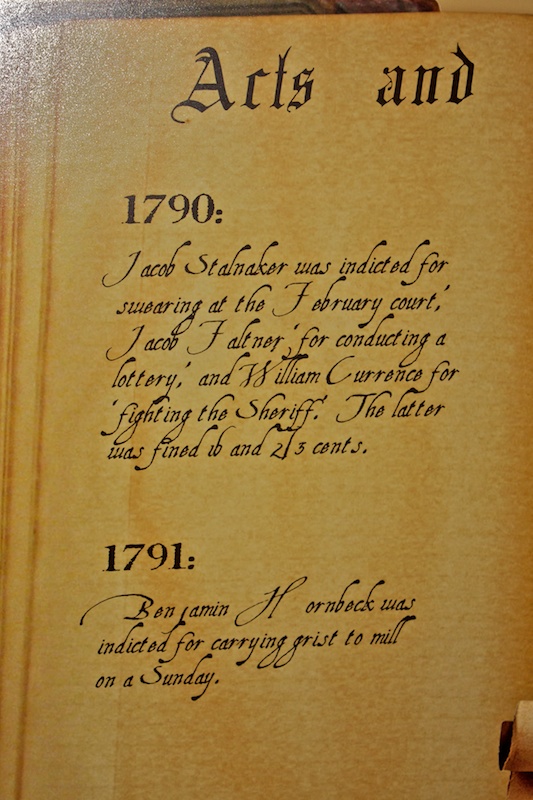 Acts and
1790:
Jacob Stalnaker was indicted for
swearing at the February court,'
Jacob Faltner,' for conducting a
lottery,' and William Currence for
'fighting the Sheriff.' The latter
was fined 16 and 2/3 cents.
1791:
Benjamin Hornbeck was
indicted for carrying grist to mill
on a Sunday.